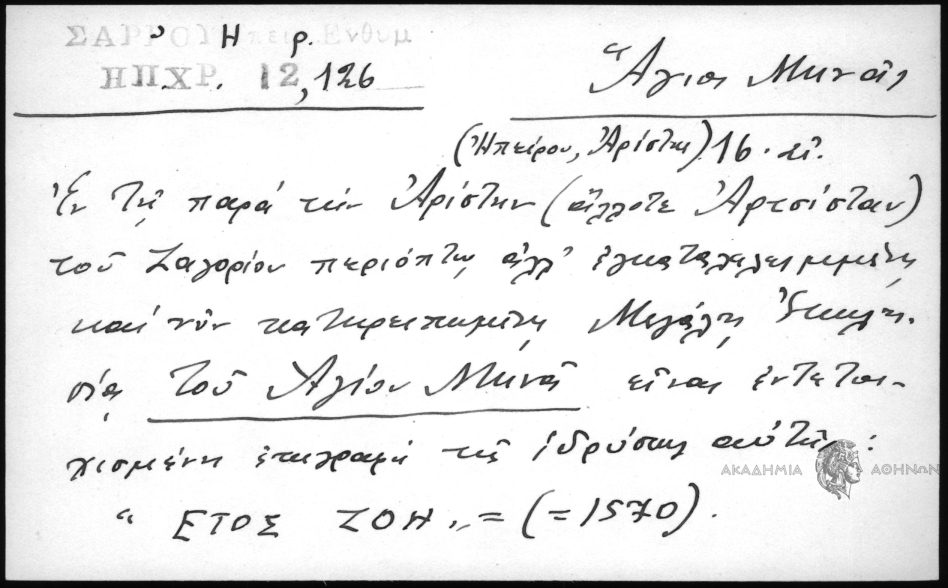 ΣΑΡΡΟΥ Ηπειρ. Ενθυμ
ΗΠ.ΧΡ. 12, 126
Ἅγιος Μηνᾶς
(Ἠπείρου, Ἀρίστης) 16 αἰ.
Ἐν τῇ παρά τήν Ἀρίστην (ἄλλοτε Ἀρτσίσταν)
τοῦ Ζαγορίου περιόπτῳ ἀλλ' ἐγκαταλελειμμένῃ
καί νῦν κατηρειπωμένῃ Μεγάλῃ Ἐκκλη-
σίᾳ τοῦ Ἁγίου Μηνᾶ εἶναι ἐντετοι-
χισμένη ἐπιγραφή τῆς ἱδρύσεως αὐτῆς:
" ΕΤΟΣ ΖΟΗ " = (= 1570).
ΑΚΑΔΗΜΙΑ ΑΘΗΝΩΝ